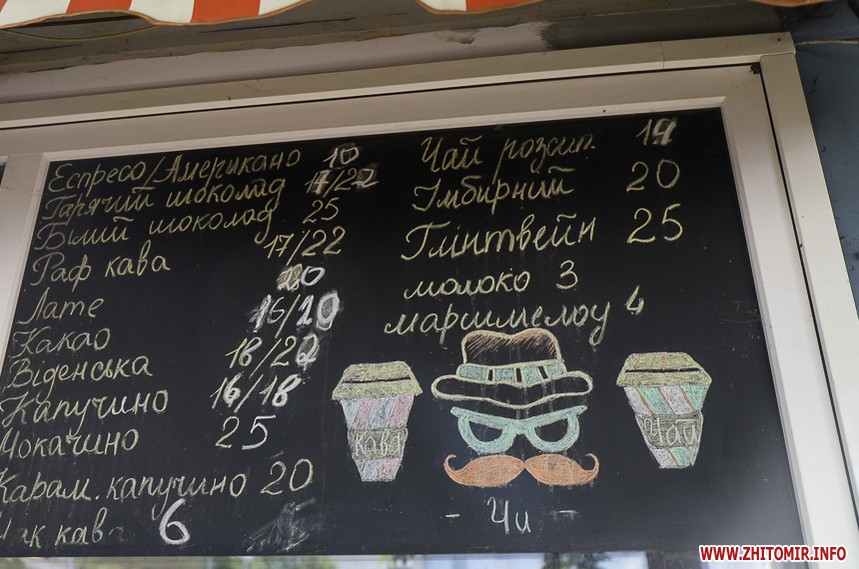 Еспресо/Американо 10
Гарячий шоколад 17/22
Білий шоколад 25
Раф кава 17/22
Лате 20
Какао 16/20
Віденська 18/22
Капучино 16/18
Мокачино 25
Карам. капучино 20
кава 6
Чай розсип. 14
Імбирний 20
Глінтвейн 25
молоко 3
маршмелоу 4
кава
Чай
- Чи -
WWW.ZHITOMIR.INFO